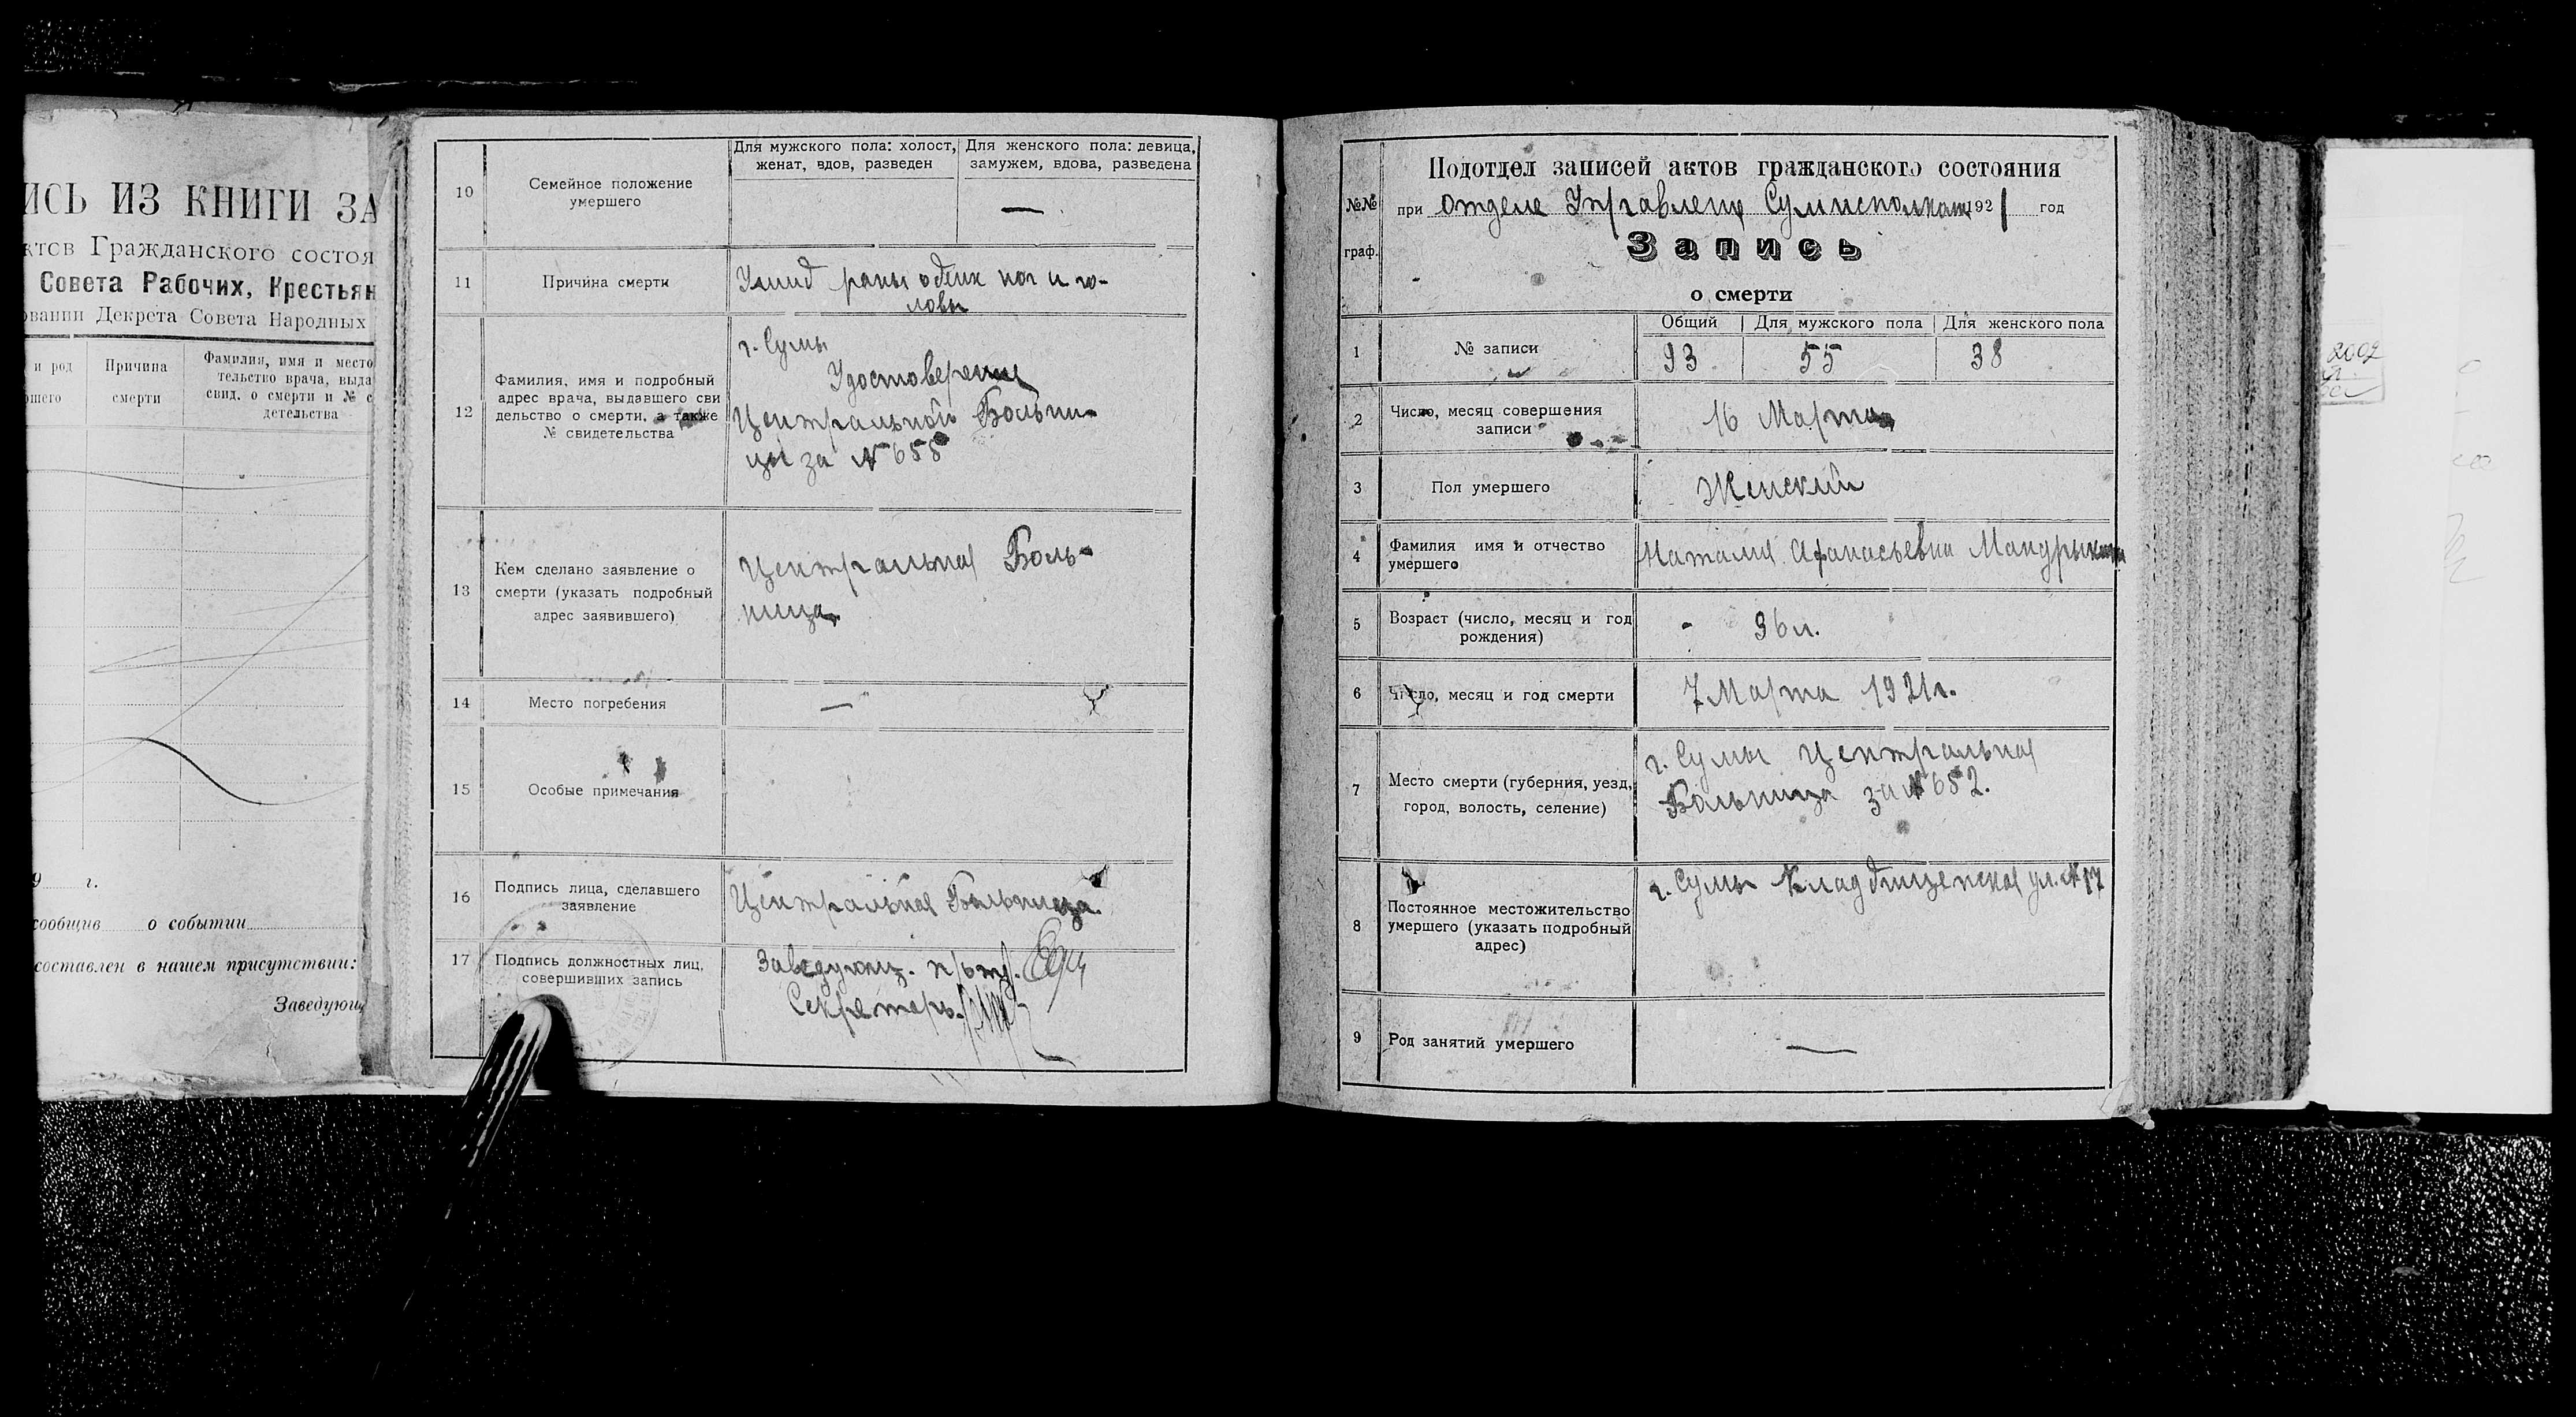 ИСЬ ИЗ КНИГИ ЗА
ктов Гражданского состоя
Совета Рабочих, Крестьян
овании Декрета Совета Народных
и род
шего
Причина
смерти
Фамилия, имя и место
тельство врача, выда
свид. о смерти и № с
детельства
9 г.
сообщив о событии
составлен в нашем присутствии:
Заведующ
10
Семейное положение
умершего
Для мужского пола: холост,
женат, вдов, разведен
Для женского пола: девица,
замужем, вдова, разведена
—
11
Причина смерти
раны обеих ног и го-
ловы
12
Фамилия, имя и подробный
адрес врача, выдавшего сви
дельство о смерти, а также
№ свидетельства
г. Сумы
Удостоверение
Центральной Больни-
цы за № 655
13
Кем сделано заявление о
смерти (указать подробный
адрес заявившего)
Центральная Боль-
ница
14
Место погребения
—
15
Особые примечания
16
Подпись лица, сделавшего
заявление
Центральная Больница.
17
Подпись должностных лиц,
совершивших запись
Заведующ.
Секретарь
№№
граф.
Подотдел записей актов гражданского состояния
при Отделе Управления Сумисполкома 1921 год
Запись
о смерти
1
№ записи
Общий
Для мужского пола
Для женского пола
93
55
38
2
Число, месяц совершения
записи
16 Марта
3
Пол умершего
Женский
4
Фамилия имя и отчество
умершего
Наталия Афанасьевна Мандрыкина
5
Возраст (число, месяц и год
рождения)
- 36 л.
6
Число, месяц и год смерти
7 Марта 1921 г.
7
Место смерти (губерния, уезд,
город, волость, селение)
г. Сумы Центральная
Больница за № 652.
8
Постоянное местожительство
умершего (указать подробный
адрес)
г. Сумы Кладбищенская ул. № 17
9
Род занятий умершего
—
2002